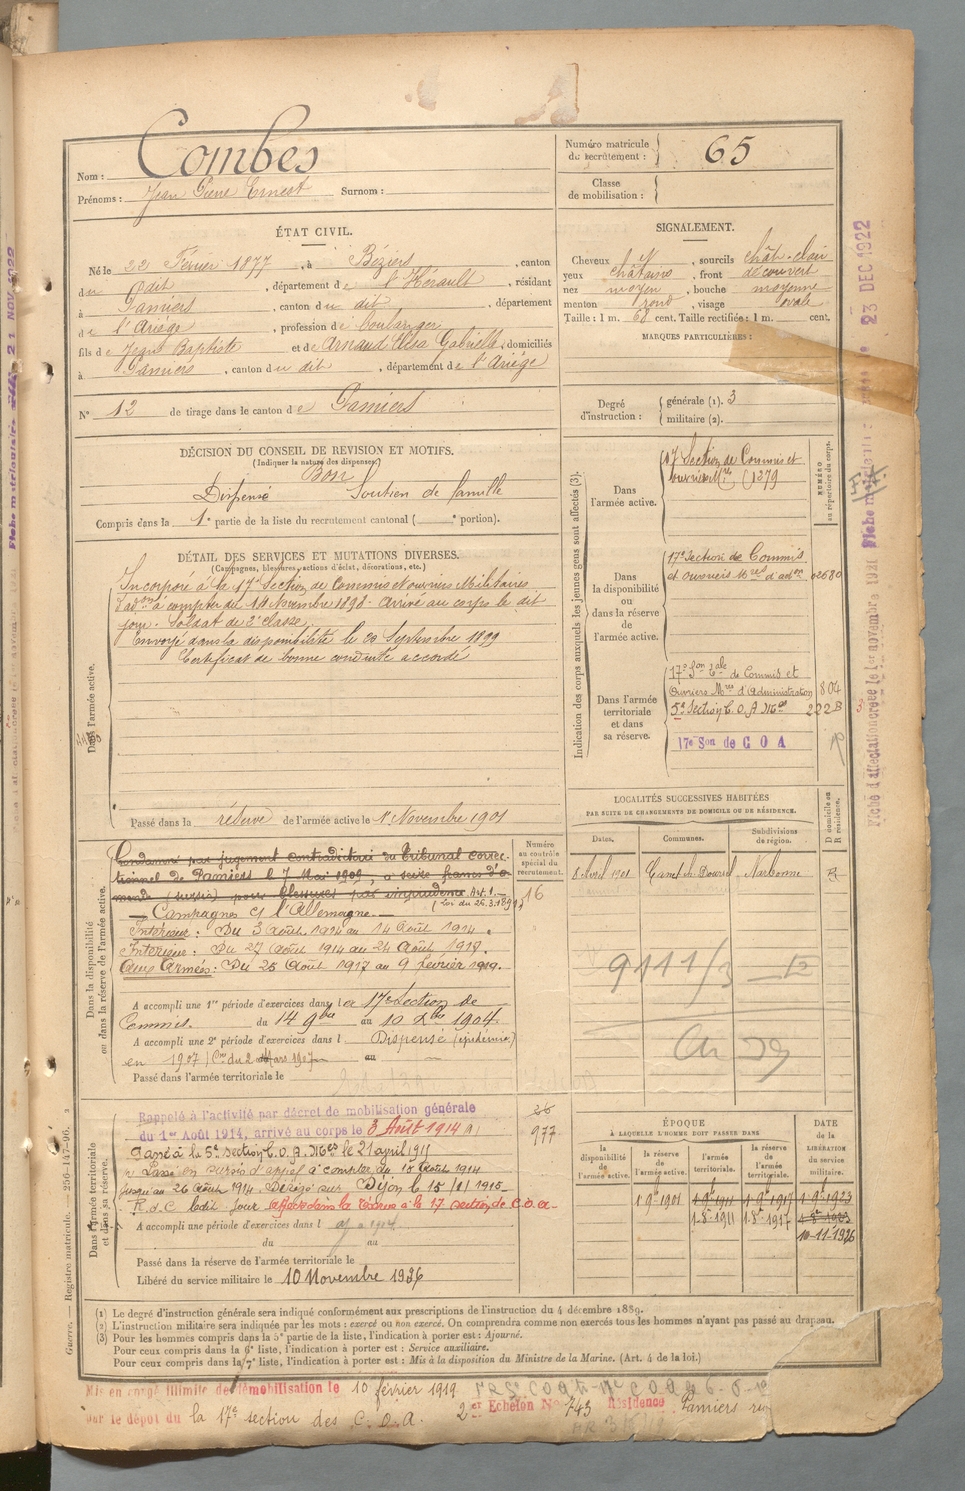 Nom : Combes
Prénoms : Jean Pierre Ernest Surnom :
Numéro matricule du recrutement : 65
Classe de mobilisation :
ÉTAT CIVIL.
Né le 22 Février 1877, à Béziers, canton
du dit, département de l'Hérault, résidant
à Pamiers, canton du dit, département
de l'Ariège, profession de boulanger
fils de Jean Baptiste et de Arnaud Elisa Gabrielle, domiciliés
à Pamiers, canton du dit, département de l'Ariège
N° 12 de tirage dans le canton de Pamiers
SIGNALEMENT.
Cheveux N, sourcils chât. clair
yeux châtains, front découvert
nez moyen, bouche moyenne
menton rond, visage ovale
Taille : 1 m. 68 cent. Taille rectifiée : 1 m. cent.
MARQUES PARTICULIÈRES :
Degré d'instruction : générale (1). 3
militaire (2).
DÉCISION DU CONSEIL DE REVISION ET MOTIFS.
(Indiquer la nature des dispenses.)
Bon
Dispensé Soutien de famille
Compris dans la 1e partie de la liste du recrutement cantonal ( e portion).
DÉTAIL DES SERVICES ET MUTATIONS DIVERSES.
(Campagnes, blessures, actions d'éclat, décorations, etc.)
Dans l'armée active.
Incorporé à la 17e Section de Commis et ouvriers Militaires
d'adon à compter du 14 Novembre 1898. Arrivé au corps le dit
jour. Soldat de 2e classe.
Envoyé dans la disponibilité le 23 Septembre 1899
Certificat de bonne conduite accordé
Passé dans la réserve de l'armée active le 1er Novembre 1901
Indication des corps auxquels les jeunes gens sont affectés (3).
NUMÉRO au répertoire du corps.
Dans l'armée active.
17 Section de Commis et
ouvriers Mres 1379
Dans la disponibilité ou dans la réserve de l'armée active.
17e Section de Commis
et Ouvriers Mres d'adon 02680
Dans l'armée territoriale et dans sa réserve.
17e Son Tale de Commis et
Ouvriers Mres d'Administration 804
5e Section C. O. A Mes 222B
17e Son de C O A
LOCALITÉS SUCCESSIVES HABITÉES
PAR SUITE DE CHANGEMENTS DE DOMICILE OU DE RÉSIDENCE.
Dates. Communes. Subdivisions de région. D domicile ou R résidence.
8 Avril 1901 Narbonne R
9111/3
Dans la disponibilité ou dans la réserve de l'armée active.
Numéro au contrôle spécial du recrutement.
16
Condamné par jugement contradictoire du Tribunal correc-
tionnel de Pamiers le 7 Mai 1909, à seize francs d'a-
mende (sursis) pour blessures par imprudence. Art. 1.
(Loi du 26.3.1891)
Campagnes ct l'Allemagne.
Intérieur : Du 3 Août 1914 au 14 Août 1914.
Intérieur : Du 27 Août 1914 au 24 Août 1917.
Aux Armées : Du 25 Août 1917 au 9 février 1919.
A accompli une 1re période d'exercices dans la 17e Section de
Commis. du 14 9bre au 10 Xbre 1904.
A accompli une 2e période d'exercices dans l Dispensé (épidémie)
en 1907 Cre du 2 Mars 1907 au
Passé dans l'armée territoriale le
Dans l'armée territoriale et dans sa réserve.
Rappelé à l'activité par décret de mobilisation générale
du 1er Août 1914, arrivé au corps le 3 Août 1914
977
Passé à la 5e section C. O. A. Mes le 21 avril 1911
Passé en sursis d'appel à compter du 15 Août 1914
jusqu'au 26 Août 1914. Dirigé sur Dijon le 15/11/1915
R.d.C. ledit jour. Affecté dans la réserve à la 17 section de C.O.A.
A accompli une période d'exercices dans l
du au
Passé dans la réserve de l'armée territoriale le
Libéré du service militaire le 10 Novembre 1926
ÉPOQUE
À LAQUELLE L'HOMME DOIT PASSER DANS
la disponibilité de l'armée active. la réserve de l'armée active. l'armée territoriale. la réserve de l'armée territoriale.
DATE de la LIBÉRATION du service militaire.
1.9bre 1901 1.9bre 1911 1.9bre 1917 1.9bre 1923
1.8bre 1911 1.8bre 1917 1.8bre 1923
10-11-1926
(1) Le degré d'instruction générale sera indiqué conformément aux prescriptions de l'instruction du 4 décembre 1889.
(2) L'instruction militaire sera indiquée par les mots : exercé ou non exercé. On comprendra comme non exercés tous les hommes n'ayant pas passé au drapeau.
(3) Pour les hommes compris dans la 5e partie de la liste, l'indication à porter est : Ajourné.
Pour ceux compris dans la 6e liste, l'indication à porter est : Service auxiliaire.
Pour ceux compris dans la 7e liste, l'indication à porter est : Mis à la disposition du Ministre de la Marine. (Art. 4 de la loi.)
Guerre. — Registre matricule. — 256-147-96.
Mis en congé illimité de démobilisation le 10 février 1919
par le dépôt du la 17e section des C.O.A. 2er Echelon N° 743 Résidence Pamiers
23 DEC 1922